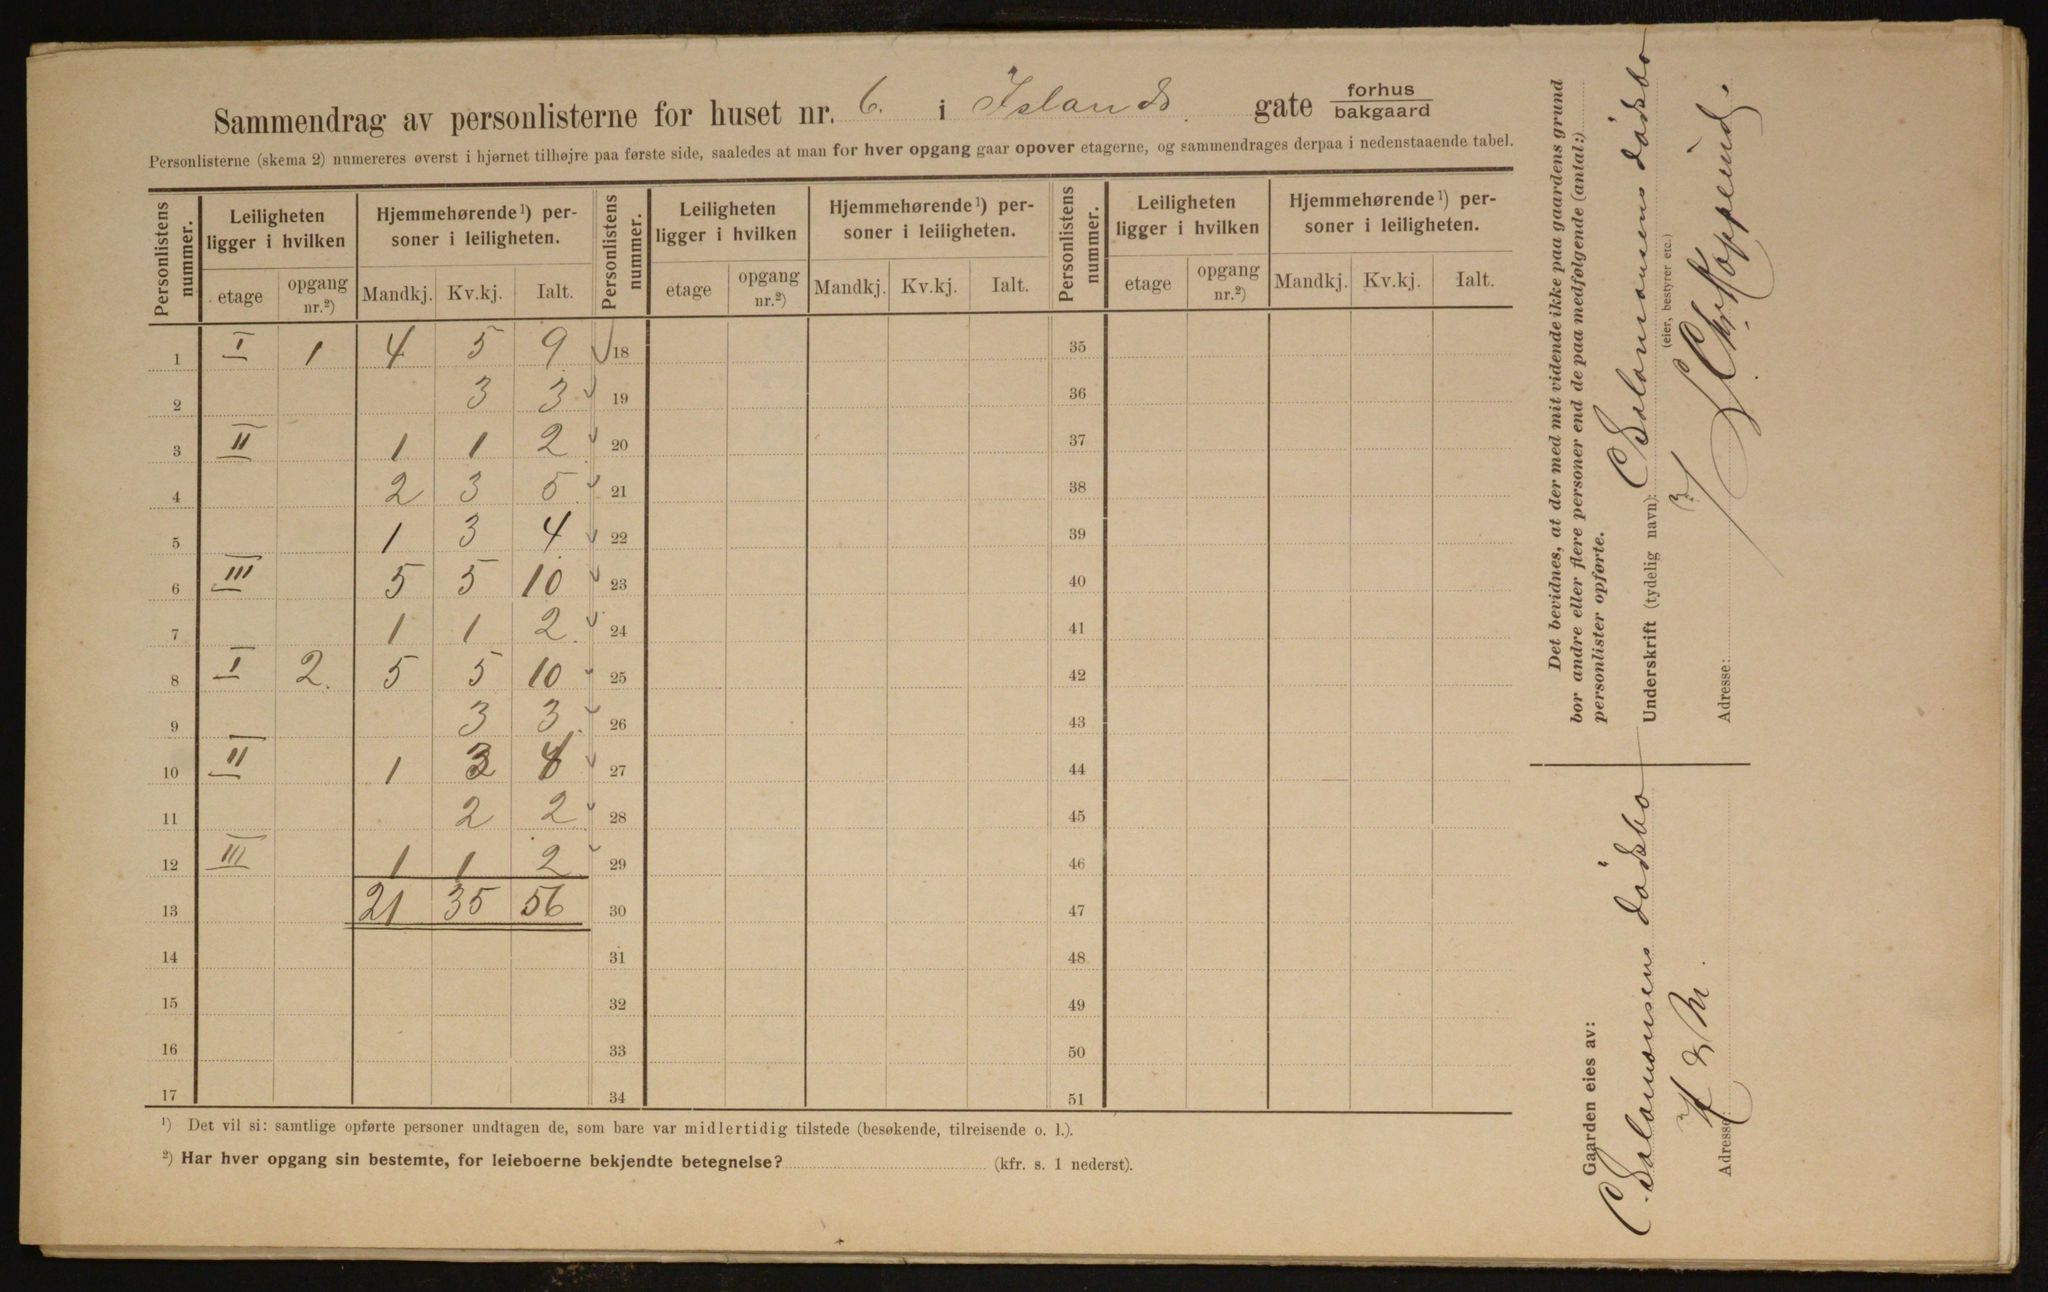 Sammendrag av personlisterne for huset nr. 6. i Islands gate forhus
bakgaard
Personlisterne (skema 2) numereres øverst i hjørnet tilhøjre paa første side, saaledes at man for hver opgang gaar opover etagerne, og sammendrages derpaa i nedenstaaende tabel.
Personlistens nummer. Leiligheten ligger i hvilken Hjemmehørende¹) personer i leiligheten. Personlistens nummer. Leiligheten ligger i hvilken Hjemmehørende¹) personer i leiligheten. Personlistens nummer. Leiligheten ligger i hvilken Hjemmehørende¹) personer i leiligheten.
etage opgang nr.²) Mandkj. Kv.kj. Ialt. etage opgang nr.²) Mandkj. Kv.kj. Ialt. etage opgang nr.²) Mandkj. Kv.kj. Ialt.
1 I 1 4 5 9 18 35
2 3 3 19 36
3 II 1 1 2 20 37
4 2 3 5 21 38
5 1 3 4 22 39
6 III 5 5 10 23 40
7 1 1 2 24 41
8 I 2. 5 5 10 25 42
9 3 3 26 43
10 II 1 3 4 27 44
11 2 2 28 45
12 III 1 1 2 29 46
13 21 35 56 30 47
14 31 48
15 32 49
16 33 50
17 34 51
¹) Det vil si: samtlige opførte personer undtagen de, som bare var midlertidig tilstede (besøkende, tilreisende o. l.).
²) Har hver opgang sin bestemte, for leieboerne bekjendte betegnelse? (kfr. s. 1 nederst).
Det bevidnes, at der med mit vidende ikke paa gaardens grund
bor andre eller flere personer end de paa medfølgende (antal:)
personlister opførte.
Underskrift (tydelig navn): C Salomonsens dødsbo
(eier, bestyrer etc.)
Adresse:
Gaarden eies av:
C Salomonsens dødsbo
Adresse: